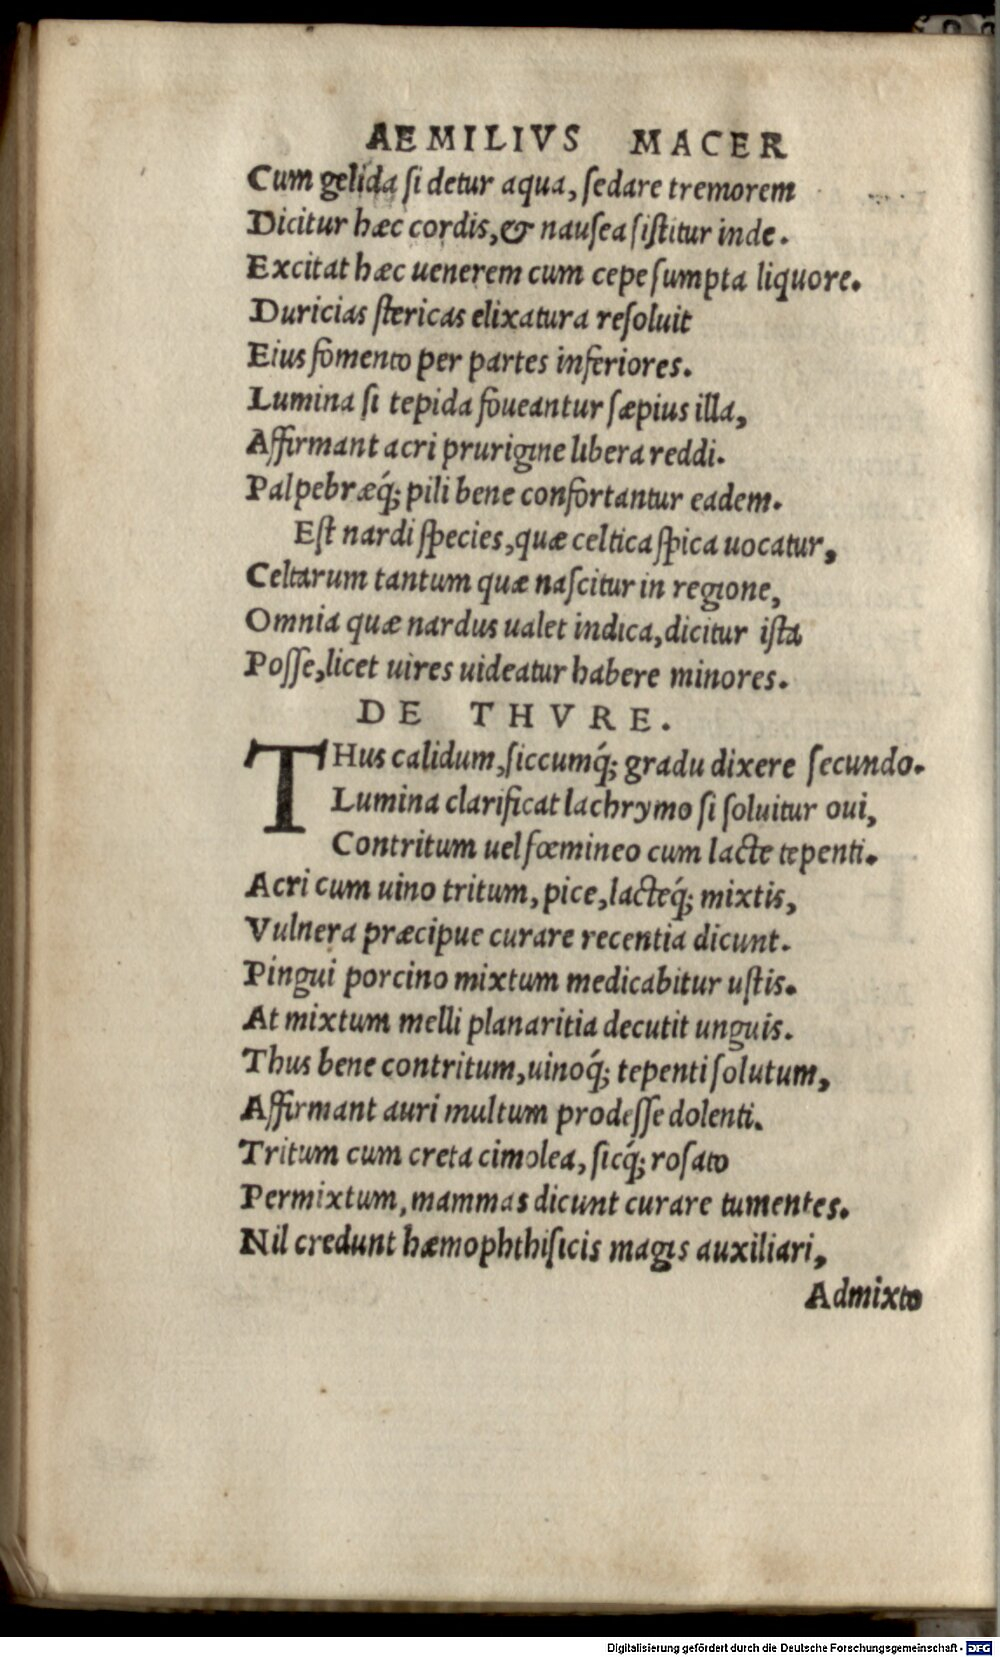 AEMILIVS MACER
Cum gelida ſi detur aqua, ſedare tremorem
Dicitur hæc cordis, & nauſea ſiſtitur inde.
Excitat hæc uenerem cum cepe ſumpta liquore.
Duricias ſtericas elixatura reſoluit
Eius fomento per partes inferiores.
Lumina ſi tepida foueantur ſæpius illa,
Affirmant acri prurigine libera reddi.
Palpebræq́; pili bene confortantur eadem.
Eſt nardi ſpecies, quæ celtica ſpica uocatur,
Celtarum tantum quæ naſcitur in regione,
Omnia quæ nardus ualet indica, dicitur iſta
Poſſe, licet uires uideatur habere minores.
DE THVRE.
THus calidum, ſiccumq́; gradu dixere ſecundo.
Lumina clarificat lachrymo ſi ſoluitur oui,
Contritum uel fœmineo cum lacte tepenti.
Acri cum uino tritum, pice, lacteq́; mixtis,
Vulnera præcipue curare recentia dicunt.
Pingui porcino mixtum medicabitur uſtis.
At mixtum melli planaritia decutit unguis.
Thus bene contritum, uinoq́; tepenti ſolutum,
Affirmant auri multum prodeſſe dolenti.
Tritum cum creta cimolea, ſicq́; roſato
Permixtum, mammas dicunt curare tumentes.
Nil credunt hæmophthiſicis magis auxiliari,
Admixto
Digitalisierung gefördert durch die Deutsche Forschungsgemeinschaft - DFG